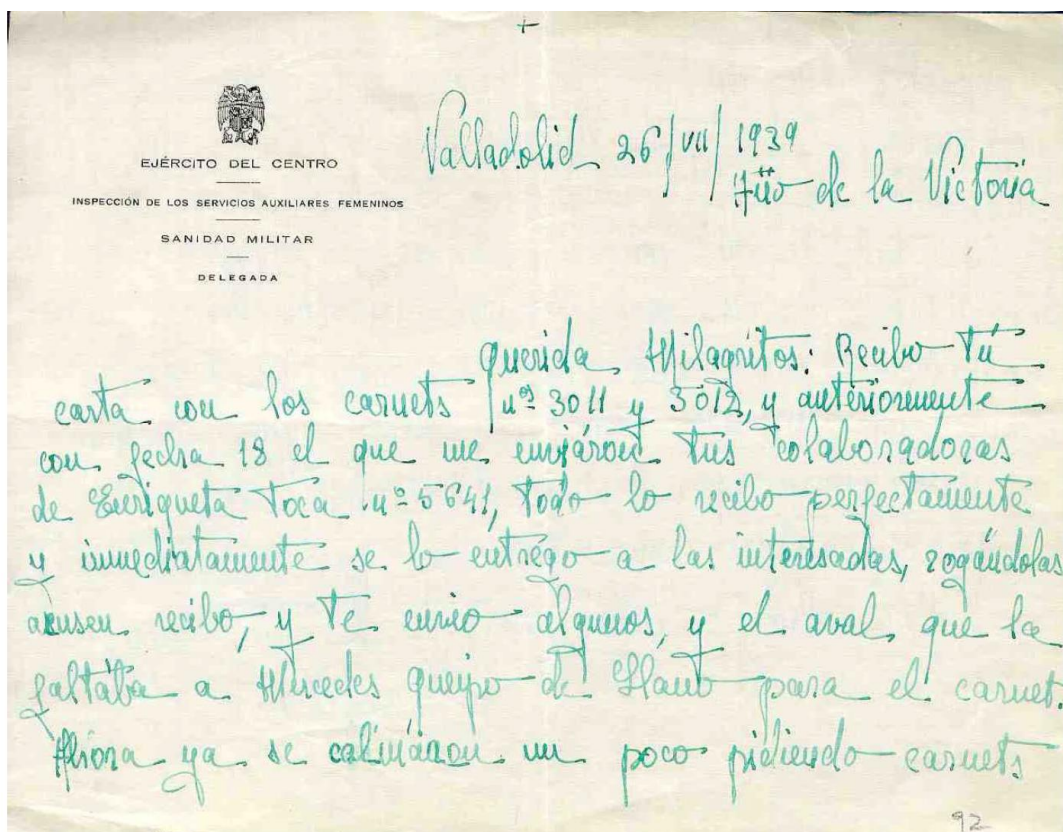 +
EJÉRCITO DEL CENTRO
INSPECCIÓN DE LOS SERVICIOS AUXILIARES FEMENINOS
SANIDAD MILITAR
DELEGADA
Valladolid 26/VII/1939
Año de la Victoria
Querida Milagritos: Recibo tú
carta con los carnets nºs 3011 y 3012, y anteriormente
con fecha 18 el que me enviáron tus colaboradoras
de Enriqueta Toca nº 5641, todo lo recibo perfectamente
y inmediatamente se lo entrego a las interesadas, rogándolas
acusen recibo, y te envio algunos, y el aval que la
faltába a Mercedes Queipo de Llano para el carnet.
Ahora ya se calmáron un poco pidiendo carnets
92